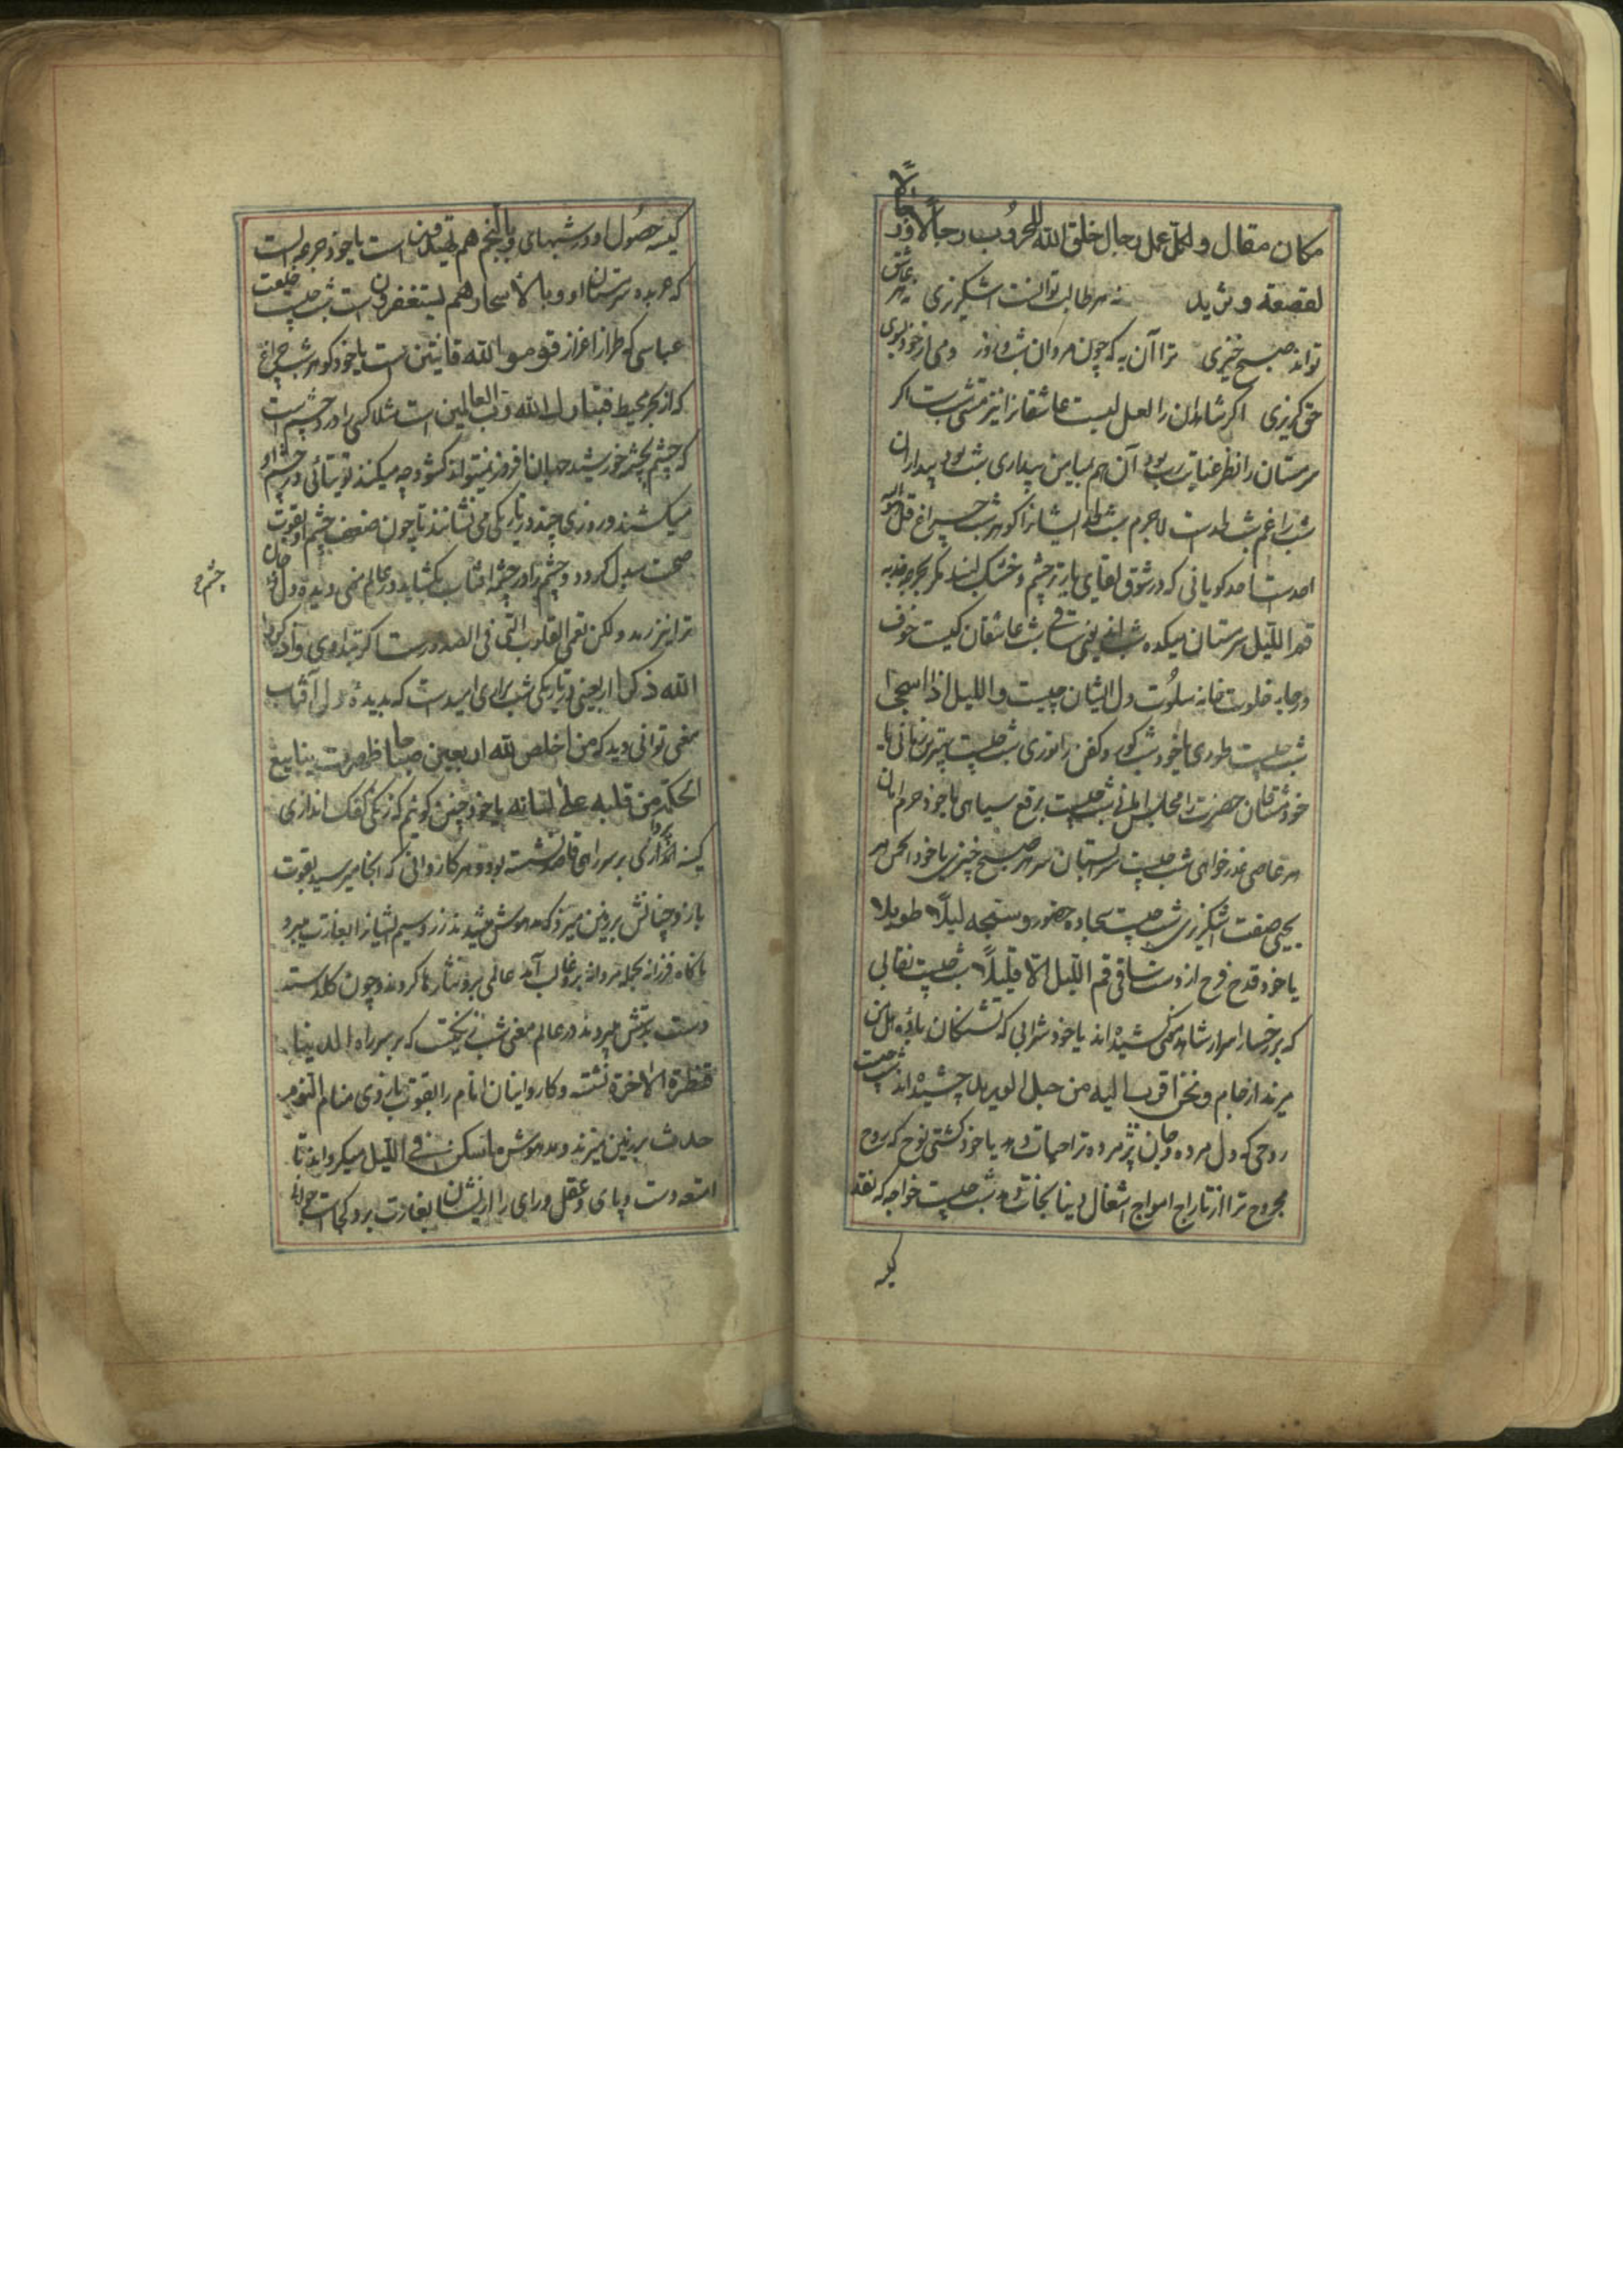 مکان مقال و لکل عمل رجال خلق الله للحروب رجالا و رجالا
لقصعة و ثرید نه هر طالب تواند اشکریزی نه هر عاشق
تواند صبح خیزی ترا آن به که چون مردان شب و روز دمی از خود بسوی
حق گریزی اگر شاهدان را لعل لبست عاشقانرا نیز مستی شبست اگر
سرمستان را نظر عنایت رب بود آن هم بیامین بیداری شب بود بیداران
شب را غم شب طلمت لاجرم شب ایشانرا گوهر شب چراغ قل هو الله
احدست احد گویانی که در شوق لقای یار تر چشم و خشک لبند
قم اللیل سرستان میکده شب عاشقان کیست خوف
و رجا به خلوت خانه سلوت دل ایشان چیست و اللیل اذا سجی
شب چیست طوری یا خود شب کور و کفن را نوری شب چیست
خود مشتاقان حضرت را مجلس شب چیست برقع سیاهی یا خود حرم امان
هر عاصی عذرخواهی شب چیست سر هر صبح خیزی یا خود انجمن هر
یحیی صفت اشکریزی شب چیست سجاده حضور و سبحه لیلا طویلا
یا خود قدح فرح از دست ساقی قم اللیل الا قلیلا شب چیست نقابی
که بر رخسار اسرار شاهد کشیده اند یا خود شرابی که تشنگان بادیه هل من
مزید از جام و نحن اقرب الیه من حبل الورید چشیده اند شب چیست
روحی که دل مرده و جان پژمرده ترا حیات دهد یا خود کشتی نوح که روح
مجروح ترا از تاراج امواج اشغال دنیا نجات دهد شب چیست خواجه که نقد
کیسه
کیسه حصول او در شبهای و بالنجم هم یهتدون است یا خود جرعه است
که عربده سرمستان او و بالاسحار هم یستغفرون است شب چیست خلعت
عباسی که طراز اعزاز قوموا لله قانتین است یا خود گوهر شب چراغ
که از بحر محیط فتبارک الله رب العالمین است مثلا کسی را درد چشم است
که چشم بچشمه خورشید جهان افروز نمیتواند گشود چه میکند توتیائی در چشم او
میکشند و روزی چند در تاریکی می نشانند تا چون ضعف چشم او بقوت
صحت مبدل گردد و چشم را در چشمه آفتاب بکشاید در عالم معنی دیده دل
چشم
ترا نیز رمد و لکن تعمی القلوب التی فی الصدور است اگر و اذکروا
الله ذکرا اربعینی در تاریکی شب برای امیدست که بدیده دل آفتاب
معنی توانی دید که من اخلص لله اربعین صباحا ظهرت ینابیع
الحکمة من قلبه علی لسانه یا خود چنین گویم که زنگی کفک اندازی
کینه بر سر راهی قاصد نشسته بود و هر کاروانی که آنجا میرسید بقوت
بازو چنانش بر زمین میزد که مدهوش میشدند زر و سیم ایشانرا بغارت میبرد
ناگاه فرزانه بحمله مردانه برو غالب آمد عالمی برو نثارها کردند و چون گلدسته
دست بدستش میبردند در عالم معنی شب زنگیست که بر سر راه الدنیا
قنطرة الاخرة نشسته و کاروانیان انام را بقوت بازوی منام النوم
حدث بر زمین میزند و مدهوش ما سکن فی اللیل میگرداند تا
امتعه دست و پای و عقل و رای را از ایشان بغارت برد کجاست